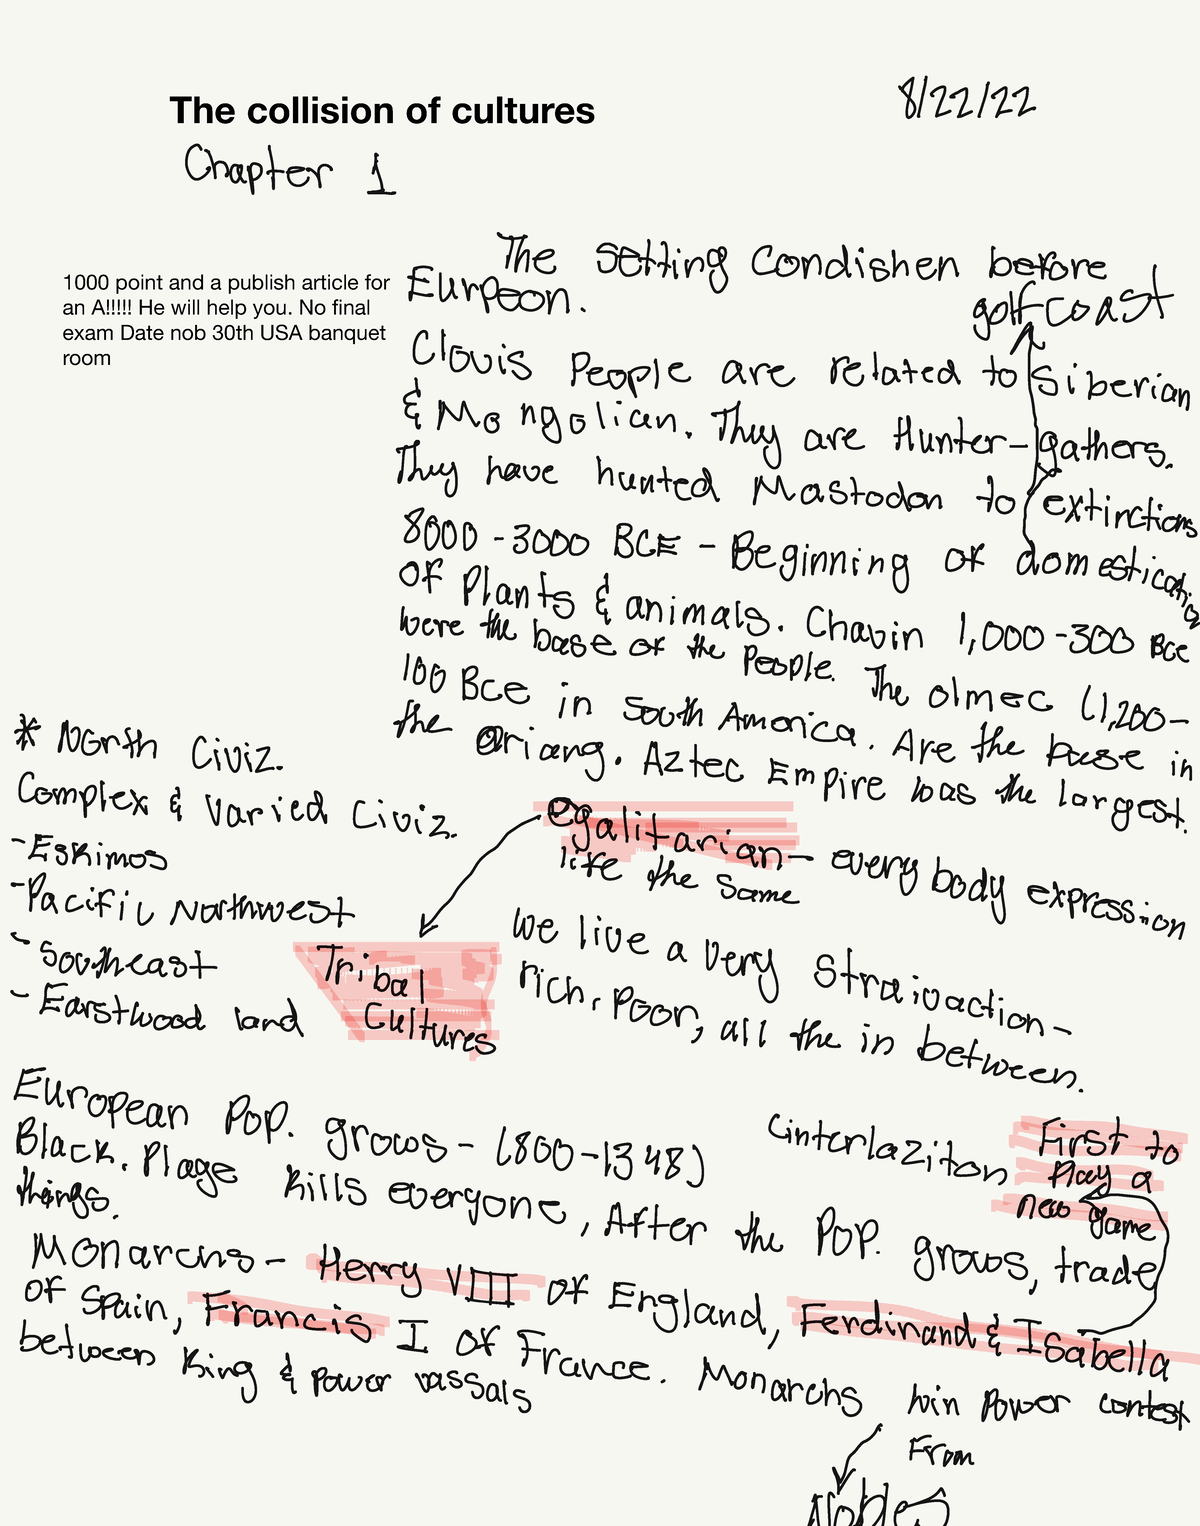 The collision of cultures
8/22/22
Chapter 1
1000 point and a publish article for
an A!!!!! He will help you. No final
exam Date nob 30th USA banquet
room
The setting Condishen before
Eurpeon.
golf coast
Clovis People are related to Siberian
& Mongolican. They are Hunter-gathers.
They have hunted Mastodon to extinctions
8000-3000 BCE - Beginning of domestication
of Plants & animals. Chavin 1,000-300 Bce
were the base of the People. The olmec (1,200-
100 Bce in South America. Are the base in
the ariang. Aztec Empire was the largest.
* North Civiz.
Complex & Varied Civiz.
- Eskimos
- Pacific Northwest
- Southeast
- Earstwood land
egalitarian - every body expression
life the same
Tribal
Cultures
we live a very
rich, Poor, all the in between.
European Pop. grows - (800-1348)
Black. Plage kills everyone, After the Pop. grows, trade
things.
First to
play a
new game
Monarchs - Herry VIII of England, Ferdinand & Isabella
of Spain, Francis I of France. Monarchs win Power contest
between King & Power vassals
From
Nobles